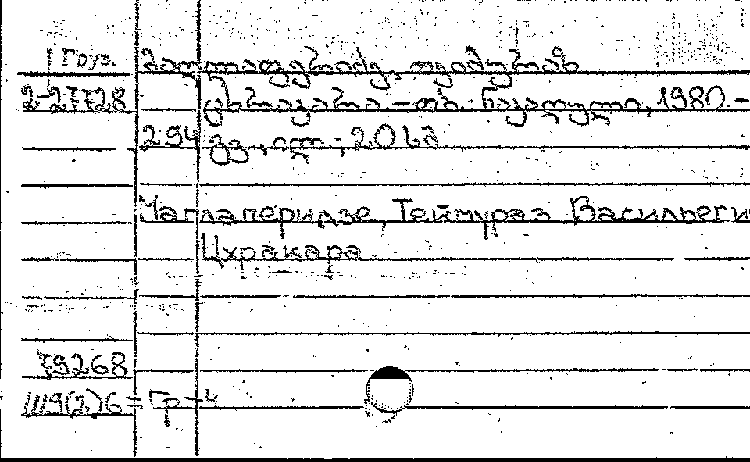 Груз. მაღლაფერიძე, თეიმურაზ
2-27728 ცხრაკარა. – თბ.: ნაკადული, 1980. –
294 გვ., ილ.; 20 სმ
Маглаперидзе, Теймураз Васильеви
Цхракара
79268
Ш9(2)6=Гр-4